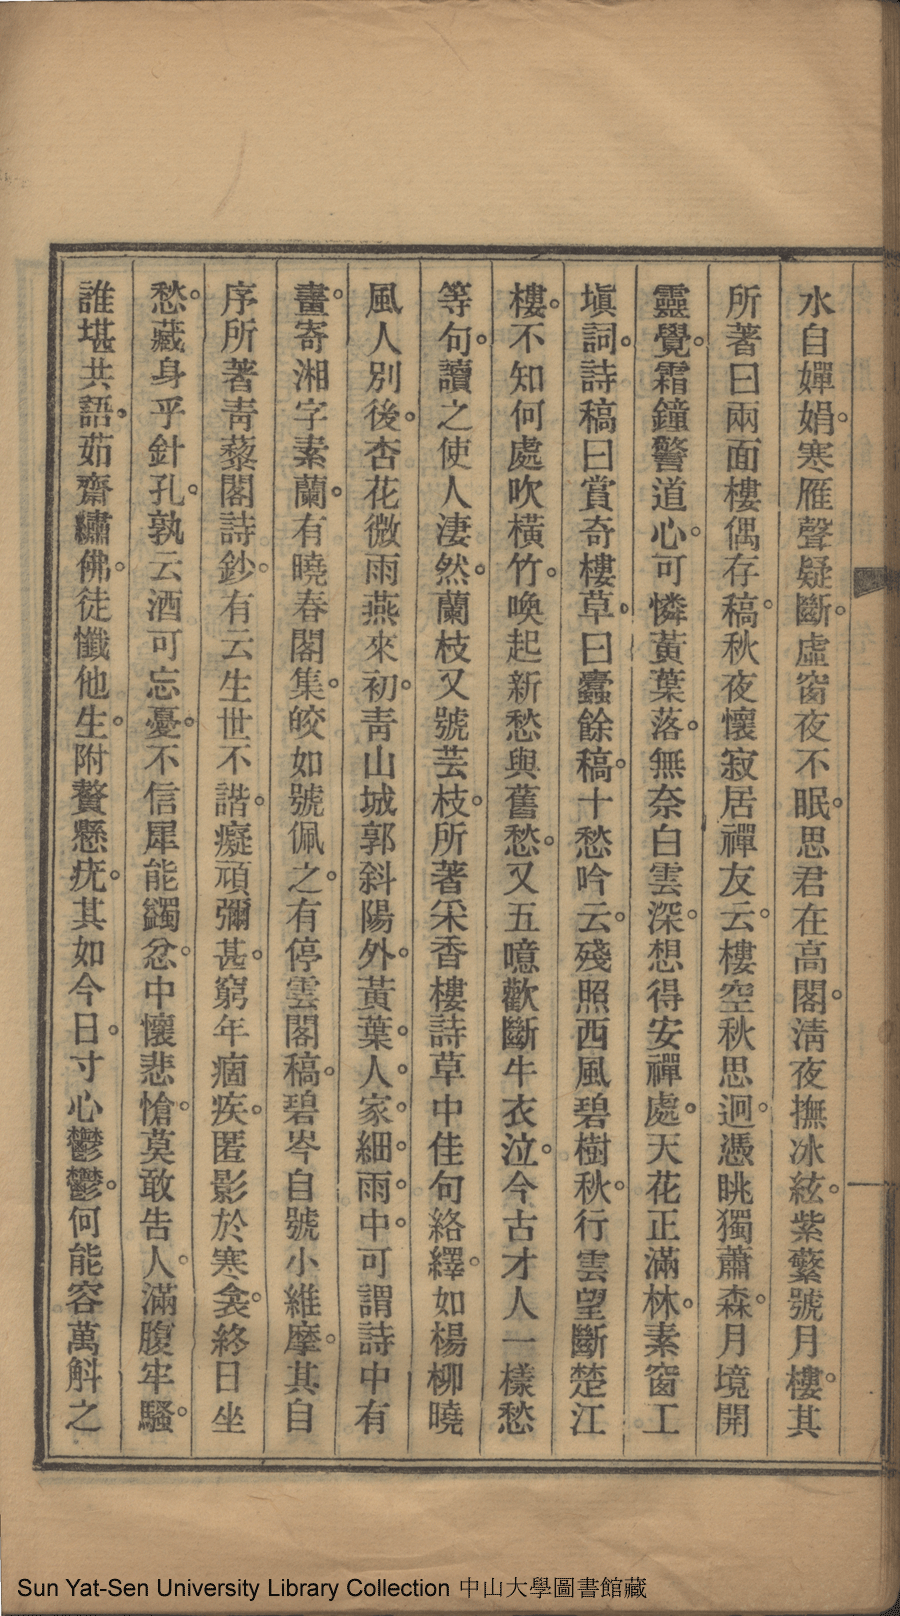 水自嬋娟。寒雁聲疑斷。虛窗夜不眠。思君在高閣。淸夜撫冰絃。紫蘩號月樓。其
所著曰兩面樓偶存稿。秋夜懷寂居禪友云。樓空秋思迥。憑眺獨蕭森。月境開
靈覺。霜鐘警道心。可憐黃葉落。無奈白雲深。想得安禪處。天花正滿林。素窗工
塡詞。詩稿曰賞奇樓草。曰蠹餘稿。十愁吟云。殘照西風碧樹秋。行雲望斷楚江
樓。不知何處吹橫竹。喚起新愁與舊愁。又五噫歡斷牛衣泣。今古才人一樣愁
等句。讀之使人淒然。蘭枝又號芸枝。所著采香樓詩草中佳句絡繹。如楊柳曉
風人別後。杏花微雨燕來初。靑山城郭斜陽外。黃葉。人。家。細。雨。中。可謂詩中有
畫。寄湘字素蘭。有曉春閣集。皎如號佩之。有停雲閣稿。碧岑自號小維摩。其自
序所著靑藜閣詩鈔。有云生世不諧。癡頑彌甚。窮年痼疾。匿影於寒衾。終日坐
愁。藏身乎針孔。孰云酒可忘憂。不信犀能蠲忿。中懷悲愴。莫敢告人。滿腹牢騷。
誰堪共語。茹齋繡佛。徒懺他生。附贅懸疣。其如今日。寸心鬱鬱。何能容萬斛之
Sun Yat-Sen University Library Collection 中山大學圖書館藏